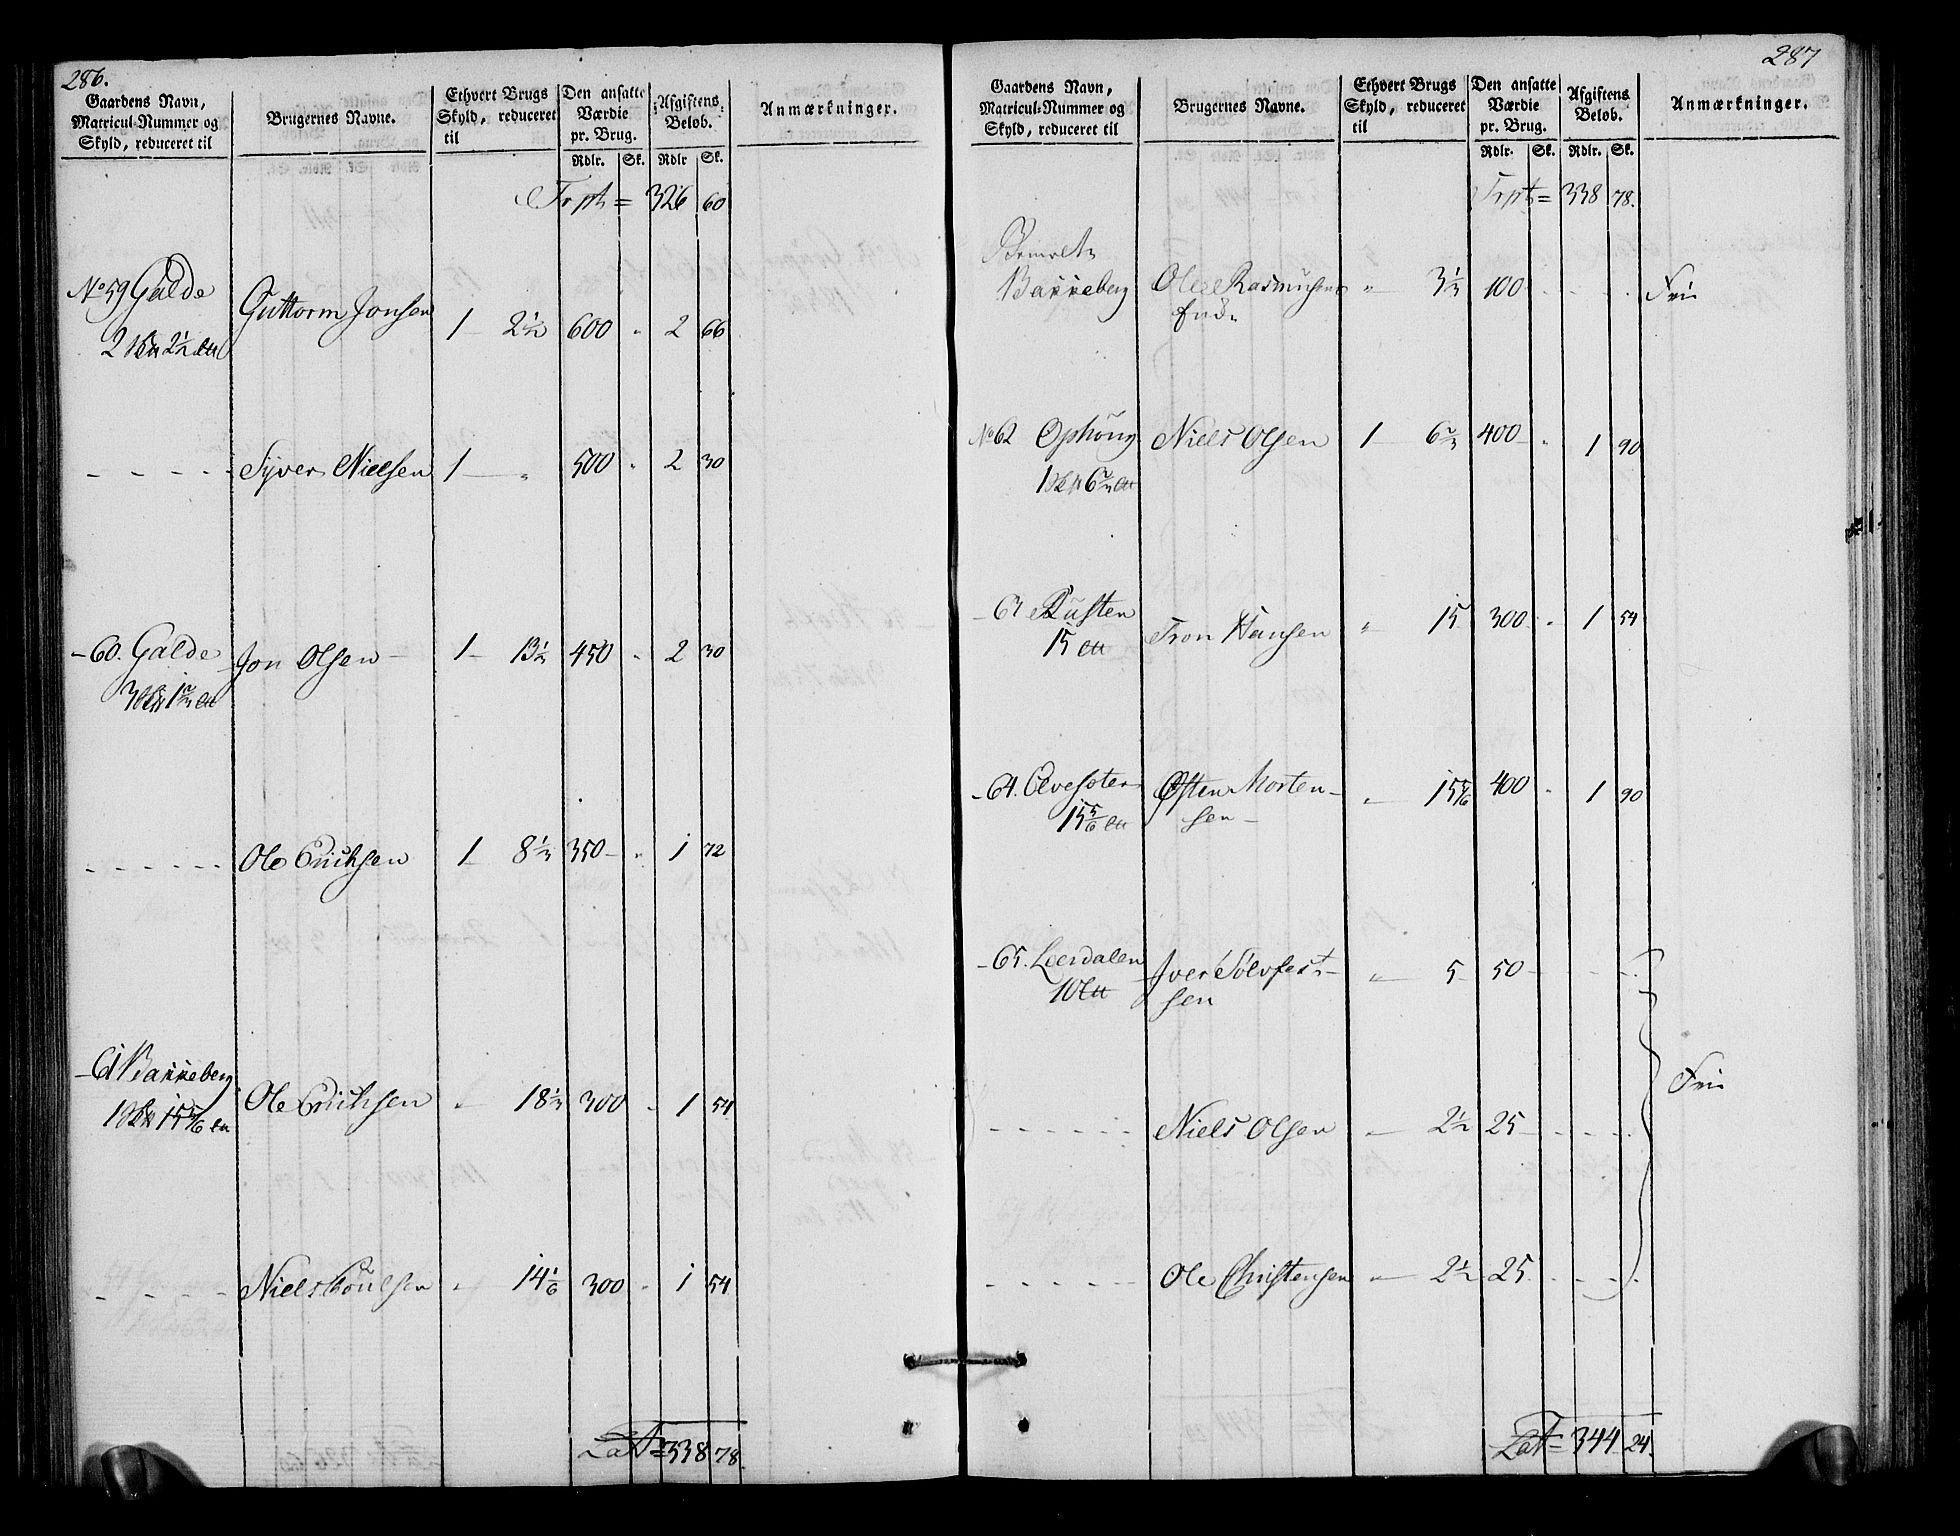 286.
Gaardens Navn, Matricul-Nummer og Skyld, reduceret til | Brugernes Navne. | Ethvert Brugs Skyld, reduceret til | Den ansatte Værdie pr. Brug. | Afgiftens Beløb. | Anmærkninger.
Rdlr. Sk. Rdlr Sk.
Trpt = 326 60
No 59 Galde Guttorm Jonsen 1 - 2½ 600 " 2 66
2 2½
- - - - Syver Nielsen 1 - " 500 " 2 30
- 60. Galde Jon Olsen - 1 - 13⅓ 450 - 2 30
3 1⅔
- - - - - Ole Erichsen 1 - 8⅓ 350 - " 1 72
- 61 Bakkeberg Ole Erichsen " 18⅓ 300 - 1 54
1 15⅚
- - - - Niels Poulsen " 14⅙ 300 " 1 54
Lat = 338 78.
287
Gaardens Navn, Matricul-Nummer og Skyld, reduceret til | Brugernes Navne. | Ethvert Brugs Skyld, reduceret til | Den ansatte Værdie pr. Brug. | Afgiftens Beløb. | Anmærkninger.
Rdlr. Sk. Rdlr. Sk.
Trpt = 338 78.
Bakkeberg Ole Rasmusens " 3⅓ 100 - - - - Frie
Enke
No 62 Ophöug Niels Olsen 1 6⅔ 400 - " 1 90
1 6⅔
- 63 Rusten Tron Hansen " 15 300 - " 1 54
15
- 64. Olvesoter Østen Morten- " 15⅚ 400 " 1 90
15⅚ sen -
- 65. Leerdalen Iver Sölvfest- " 5 50 - - - -
10 sen
Frie
- - - - - - Niels Olsen " 2½ 25 - - - -
- - - - - - Ole Christensen " 2½ 25 - - - -
Lat = 344 24.